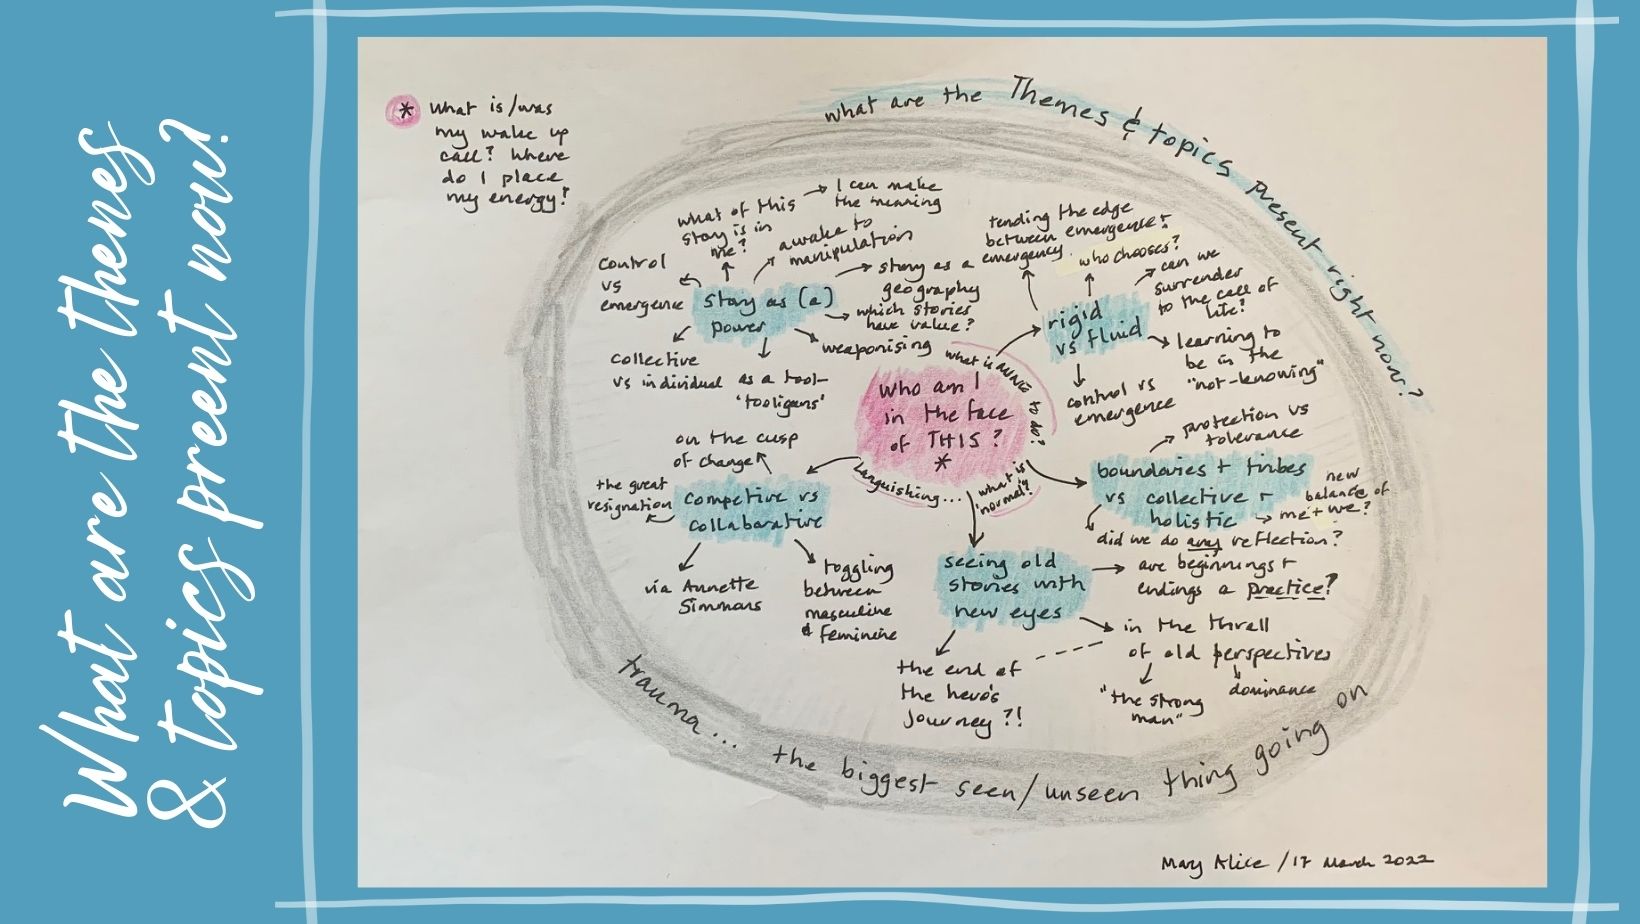 What are the themes
& topics preent now?
* What is/was
my wake up
call? Where
do I place
my energy?
what are the Themes & topics present right now?
what of this
story is in
me?
I can make
the meaning
awake to
manipulation
control
vs
emergence
story as (a)
power
story as a
geography
which stories
have value?
weaponising
collective
vs individual
as a tool-
'tooligans'
tending the edge
between emergence +
emergency
who chooses?
can we
surrender
to the call of
life?
rigid
vs fluid
learning to
be in the
"not-knowing"
control vs
emergence
what is MINE to do?
who am I
in the face
of THIS?
*
languishing...
what is
'normal?'
on the cusp
of change
the great
resignation
competive vs
collaborative
via Annette
Simmons
toggling
between
masculine
& feminine
protection vs
tolerance
boundaries + tribes
vs collective +
holistic
new
balance of
me + we?
did we do any reflection?
seeing old
stories with
new eyes
are beginnings +
endings a practice?
in the thrall
of old perspectives
"the strong
man"
dominance
the end of
the hero's
journey?!
trauma... the biggest seen/unseen thing going on
Mary Alice / 17 March 2022